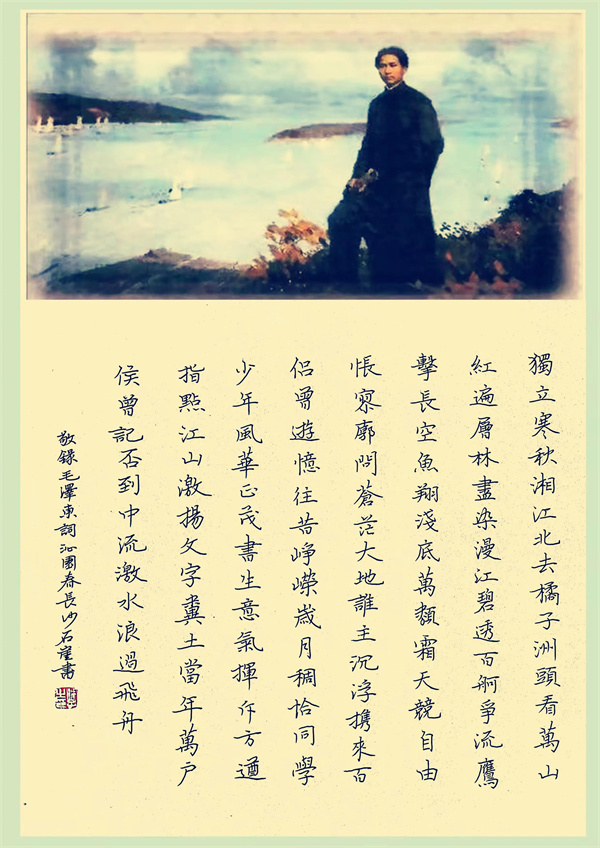 獨立寒秋湘江北去橘子洲頭看萬山
紅遍層林盡染漫江碧透百舸爭流鷹
擊長空魚翔淺底萬類霜天競自由
悵寥廓問蒼茫大地誰主沉浮携來百
侶曾遊憶往昔崢嶸歲月稠恰同學
少年風華正茂書生意氣揮斥方遒
指點江山激揚文字糞土當年萬戶
侯曾記否到中流激水浪遏飛舟
敬錄毛澤東詞沁園春長沙石崖書